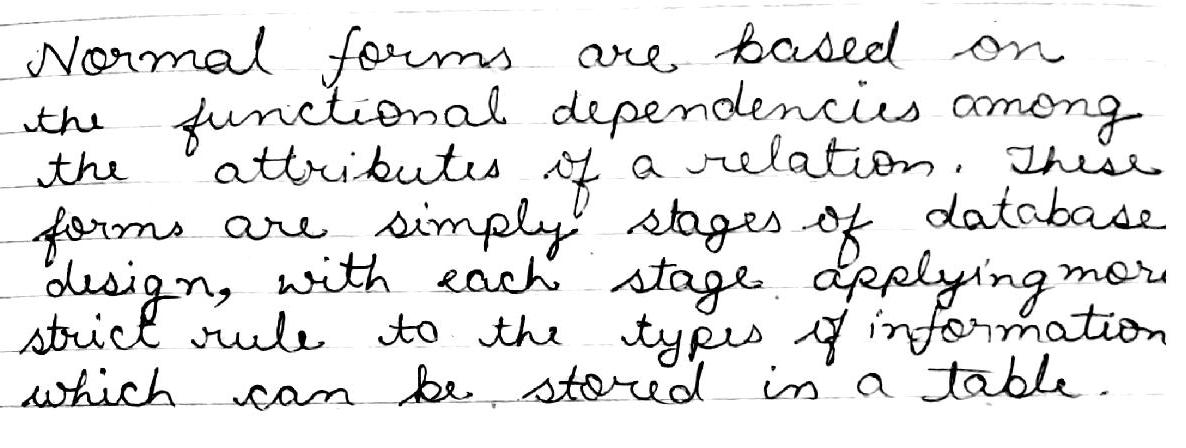 Normal forms are based on
the functional dependencies among
the attributes of a relation. These
forms are simply stages of database
design, with each stage applying more
strict rule to the types of information
which can be stored in a table.